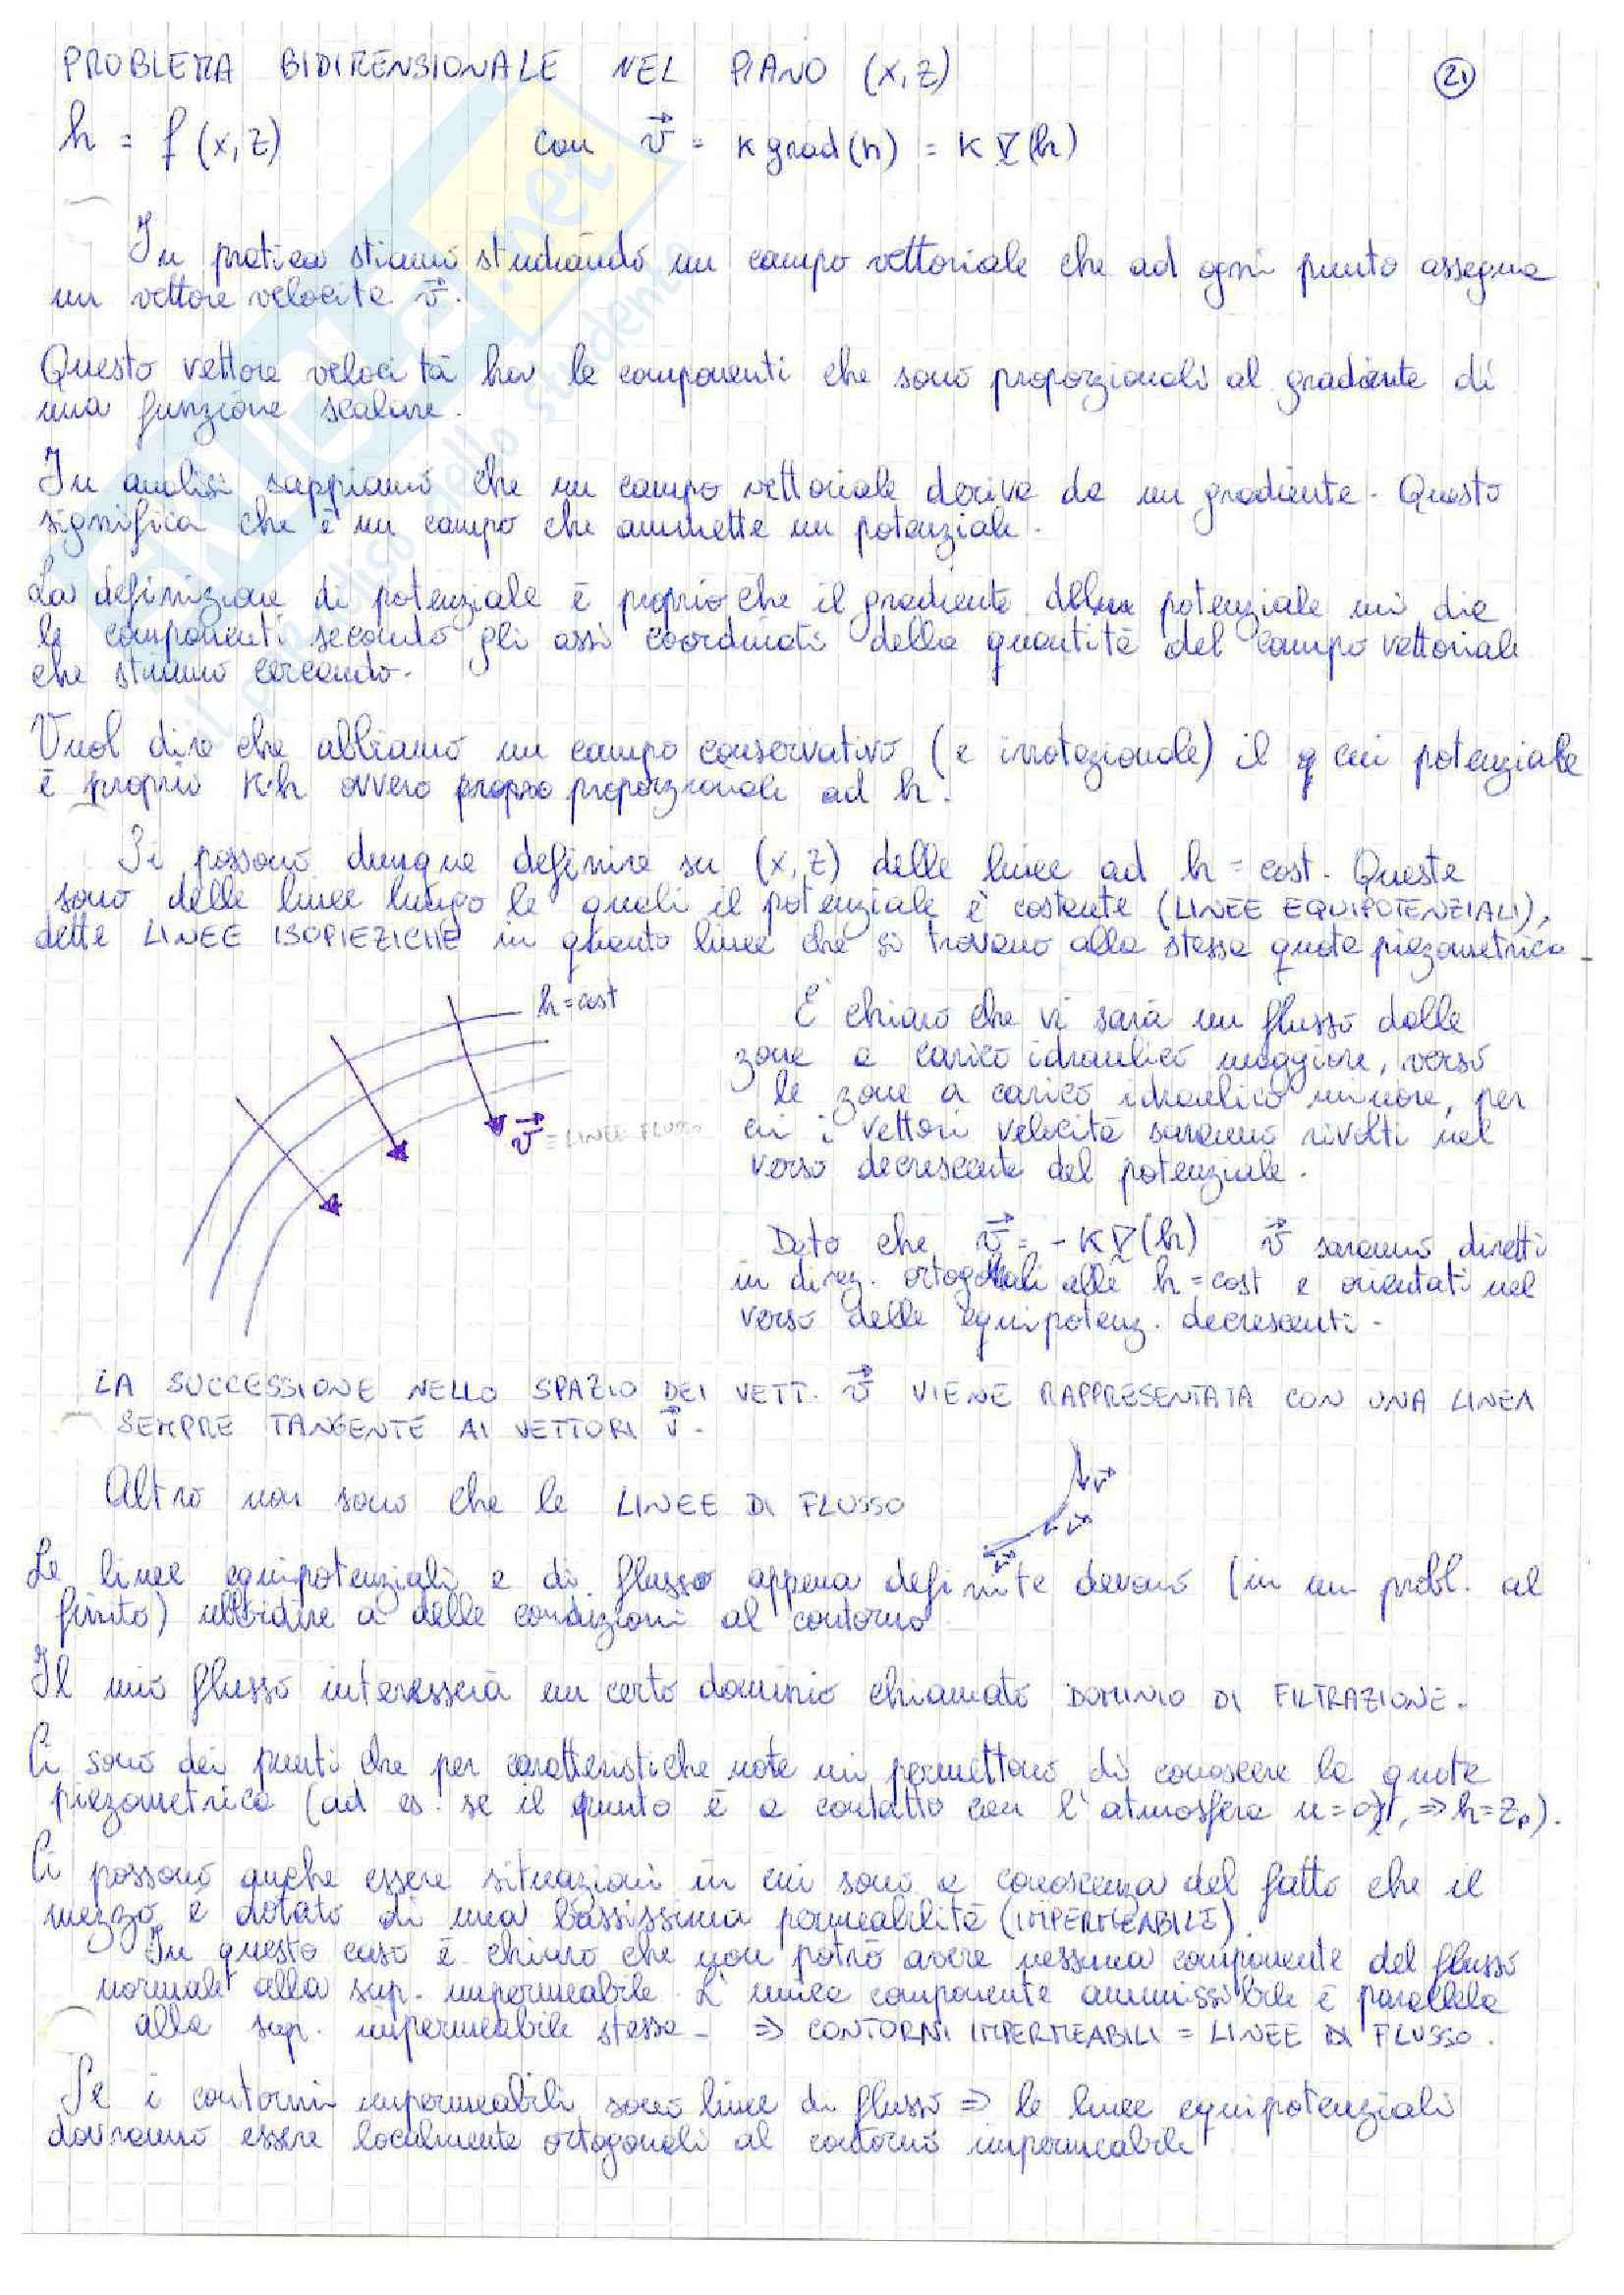 PROBLEMA BIDIMENSIONALE NEL PIANO (x,z)
21
h = f (x,z) con v⃗ = K grad(h) = K ∇(h)
In pratica stiamo studiando un campo vettoriale che ad ogni punto assegna
un vettore velocità v⃗.
Questo vettore velocità ha le componenti che sono proporzionali al gradiente di
una funzione scalare.
In analisi sappiamo che un campo vettoriale deriva da un gradiente. Questo
significa che è un campo che ammette un potenziale.
La definizione di potenziale è proprio che il gradiente potenziale mi dia
le componenti secondo gli assi coordinati della quantità del campo vettoriale
che stiamo cercando.
Vuol dire che abbiamo un campo conservativo (e irrotazionale) il cui potenziale
è proprio K·h ovvero proporzionale ad h.
Si possono dunque definire su (x,z) delle linee ad h = cost. Queste
sono delle linee lungo le quali il potenziale è costante (LINEE EQUIPOTENZIALI),
dette LINEE ISOPIEZICHE in quanto linee che si trovano alla stessa quota piezometrica.
h=cost
v⃗ = LINEE FLUSSO
È chiaro che vi sarà un flusso dalle
zone a carico idraulico maggiore, verso
le zone a carico idraulico minore, per
cui i vettori velocità saranno rivolti nel
verso decrescente del potenziale.
Dato che v⃗ = -K∇(h) v⃗ saranno diretti
in direz. ortogonali alle h=cost e orientati nel
verso delle equipotenz. decrescenti.
LA SUCCESSIONE NELLO SPAZIO DEI VETT. v⃗ VIENE RAPPRESENTATA CON UNA LINEA
SEMPRE TANGENTE AI VETTORI v⃗.
Altro non sono che le LINEE DI FLUSSO
v⃗
v⃗
v⃗
Le linee equipotenziali e di flusso appena definite devono (in un probl. al
finito) ubbidire a delle condizioni al contorno
Il mio flusso interesserà un certo dominio chiamato DOMINIO DI FILTRAZIONE.
Ci sono dei punti che per caratteristiche note mi permettono di conoscere la quota
piezometrica (ad es. se il punto è a contatto con l'atmosfera u=0, ⇒ h=zₚ).
Ci possono anche essere situazioni in cui sono a conoscenza del fatto che il
mezzo è dotato di una bassissima permeabilità (IMPERMEABILI).
In questo caso è chiaro che non potrò avere nessuna componente del flusso
normale alla sup. impermeabile. L'unica componente ammissibile è parallela
alla sup. impermeabile stessa - ⇒ CONTORNI IMPERMEABILI = LINEE DI FLUSSO.
Se i contorni impermeabili sono linee di flusso ⇒ le linee equipotenziali
dovranno essere localmente ortogonali al contorno impermeabile